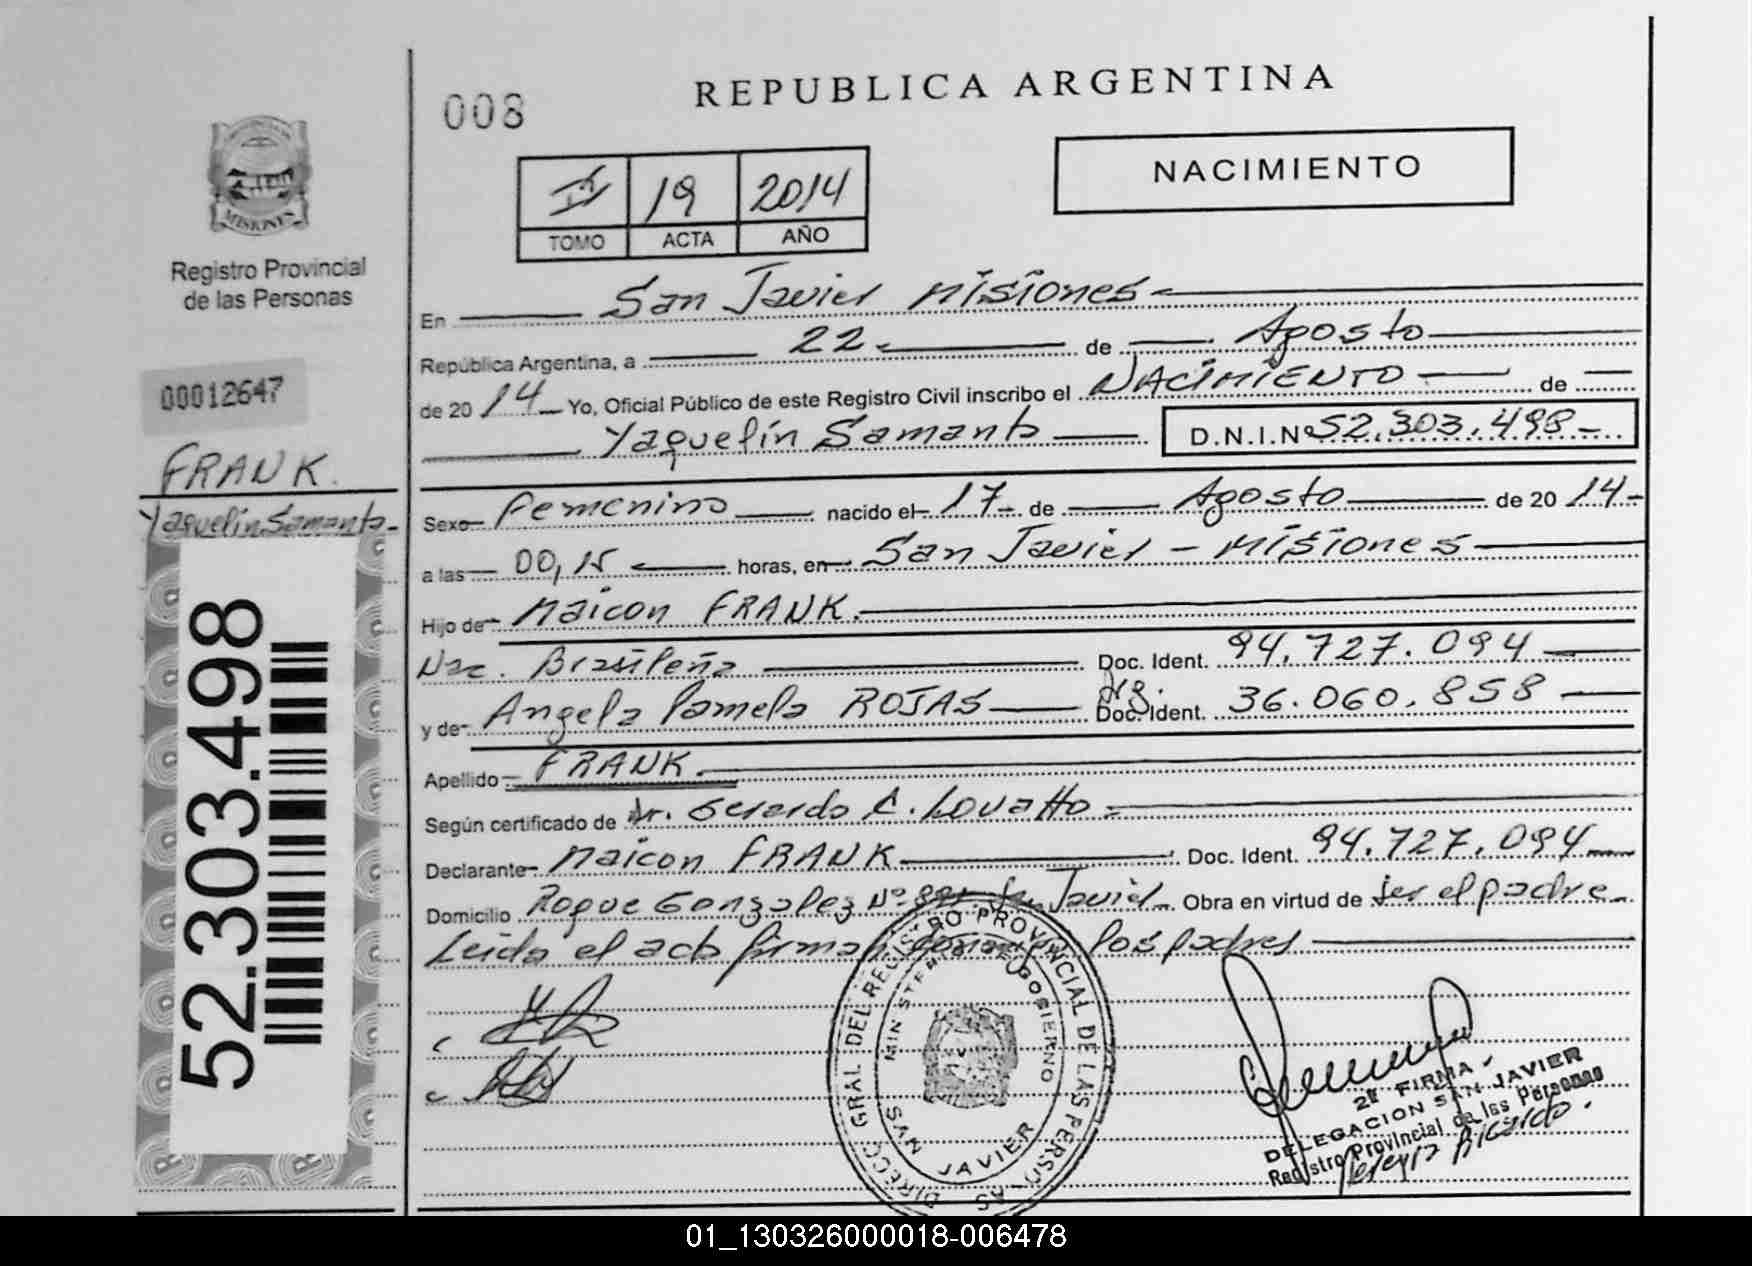 008
REPUBLICA ARGENTINA
NACIMIENTO
19 2014
TOMO ACTA AÑO
MISIONES
Registro Provincial
de las Personas
00012647
FRANK.
Yaquelin Samanta
52.303.498
En San Javier Misiones
República Argentina, a 22 de Agosto
de 2014 Yo, Oficial Público de este Registro Civil inscribo el NACIMIENTO de
Yaquelín Samanta D.N.I.Nº 52.303.498
Sexo Femenino nacido el 17 de Agosto de 2014
a las 00,15 horas, en San Javier - Misiones
Hijo de Maicon FRANK.
Nac. Brasileña Doc. Ident. 94.727.094
y de Angela Pamela ROJAS Arg. Doc. Ident. 36.060.858
Apellido FRANK.
Según certificado de Dr. Gerardo A. Lovatto
Declarante Maicon FRANK Doc. Ident. 94.727.094
Domicilio Roque Gonzalez Nº San Javier Obra en virtud de ser el padre
Leida el acta firman los padres
DIRECC. GRAL DEL REGISTRO PROVINCIAL DE LAS PERSONAS
MINISTERIO DE GOBIERNO
SAN JAVIER
2ª FIRMA
DELEGACION SAN JAVIER
Registro Provincial de las Personas
Pereyra Ricardo.
01_130326000018-006478